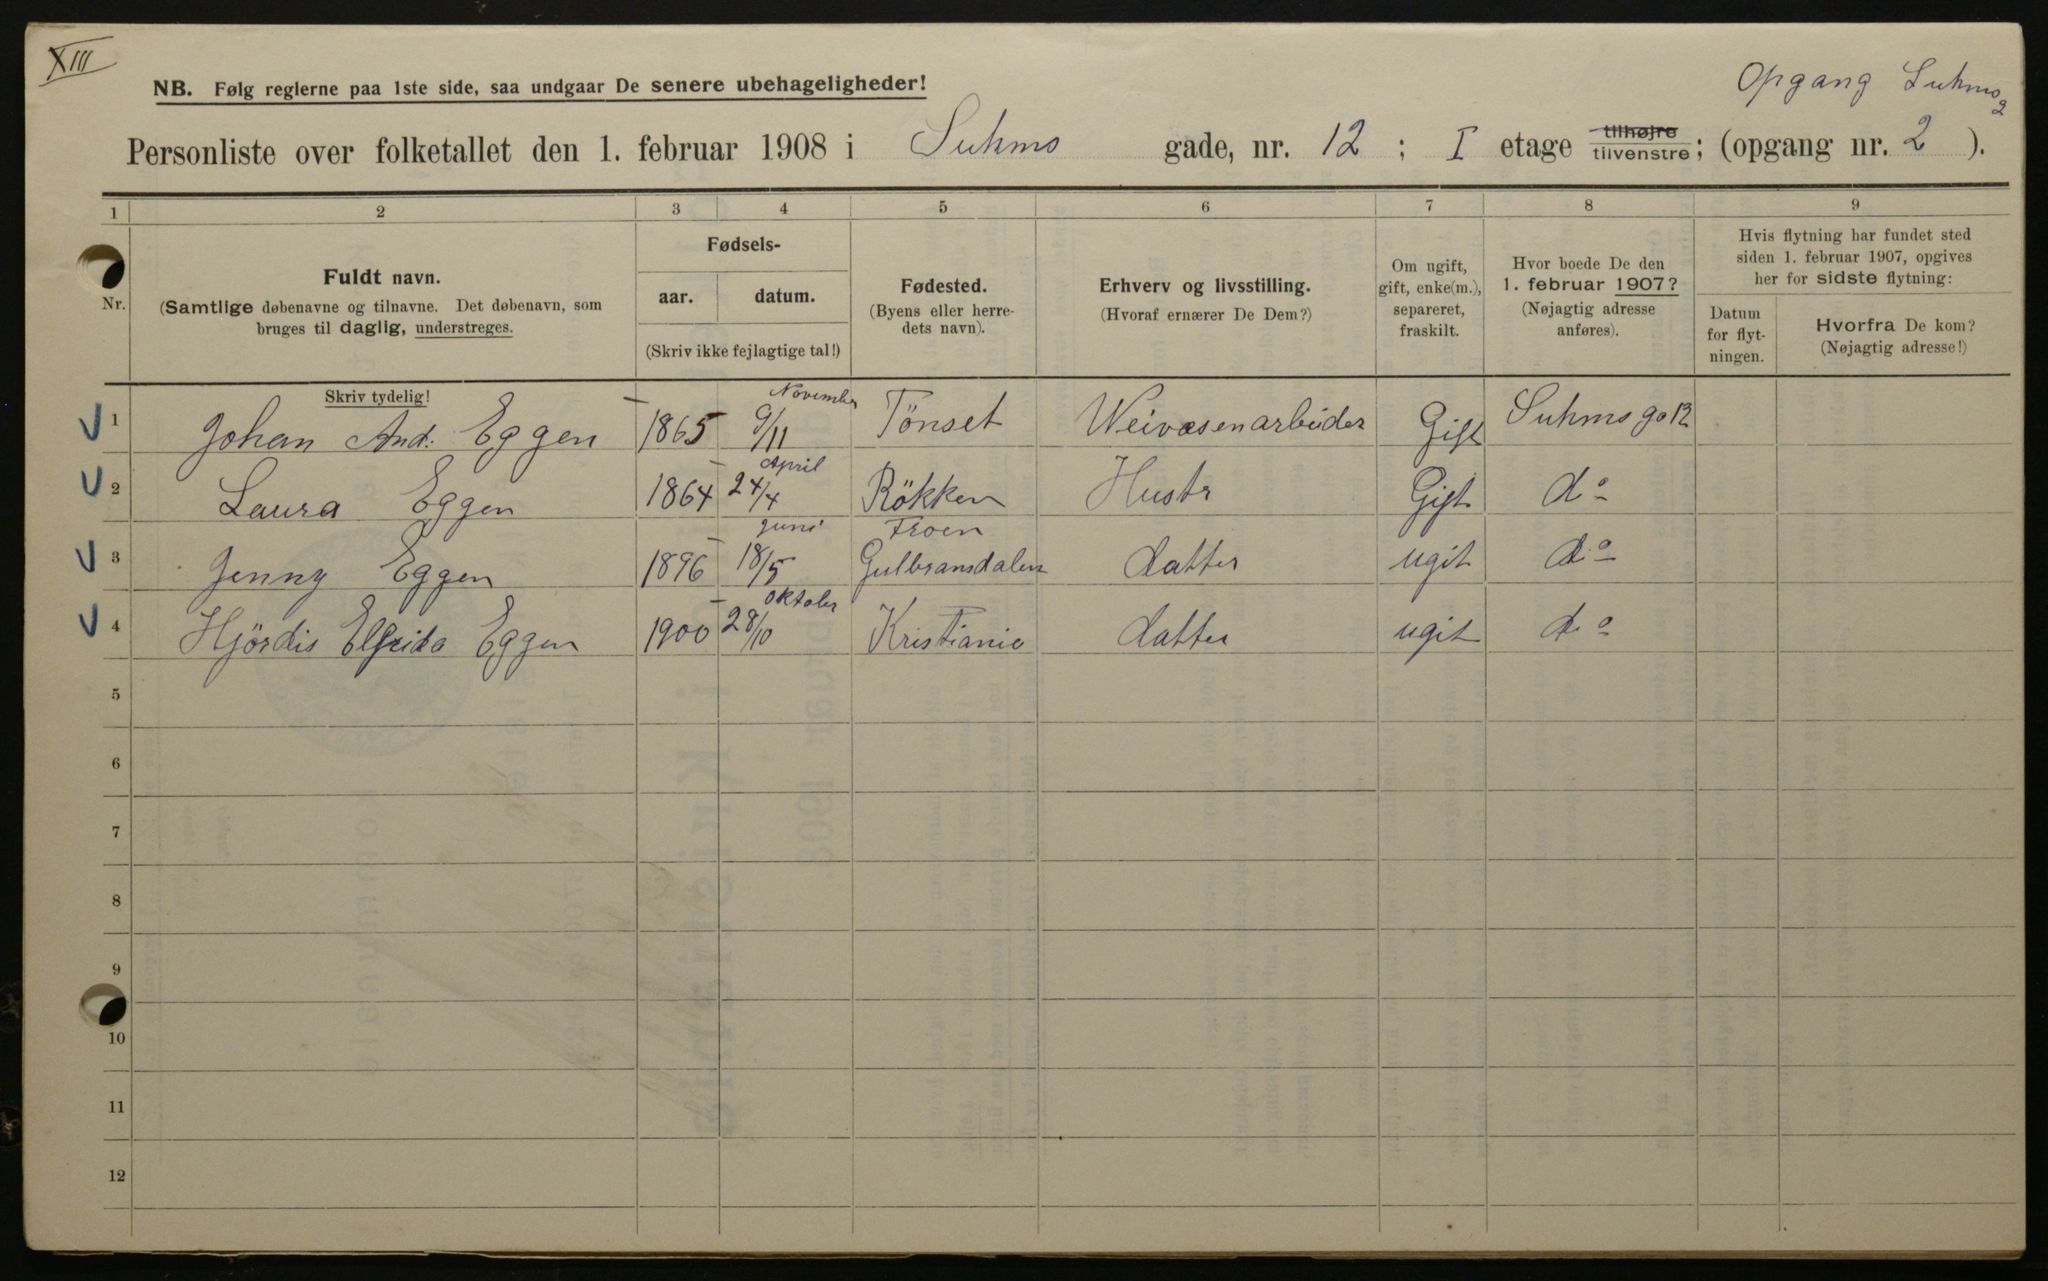 XIII
NB. Følg reglerne paa 1ste side, saa undgaar De senere ubehageligheder!
Opgang Suhms g
Personliste over folketallet den 1. februar 1908 i Suhms gade, nr. 12 ; I etage tilhøjre tilvenstre ; (opgang nr. 2 ).
1 2 3 4 5 6 7 8 9
Nr.
Fuldt navn.
(Samtlige døbenavne og tilnavne. Det døbenavn, som
bruges til daglig, understreges.
Skriv tydelig!
Fødsels-
aar. datum.
(Skriv ikke fejlagtige tal!)
Fødested.
(Byens eller herre-
dets navn).
Erhverv og livsstilling.
(Hvoraf ernærer De Dem?)
Om ugift,
gift, enke(m.),
separeret,
fraskilt.
Hvor boede De den
1. februar 1907?
(Nøjagtig adresse
anføres).
Hvis flytning har fundet sted
siden 1. februar 1907, opgives
her for sidste flytning:
Datum
for flyt-
ningen.
Hvorfra De kom?
(Nøjagtig adresse!)
November
1 Johan And: Eggen 1865 9/11 Tönset Weivæsenarbeider Gift Suhms ga 12
April
2 Laura Eggen 1864 24/4 Rökken Hustr Gift do
Juni Froen
3 Jenny Eggen 1896 18/5 Gulbransdalen datter ugit do
Oktober
4 Hjördis Elfrida Eggen 1900 28/10 Kristiania datter ugit do
5
6
7
8
9
10
11
12